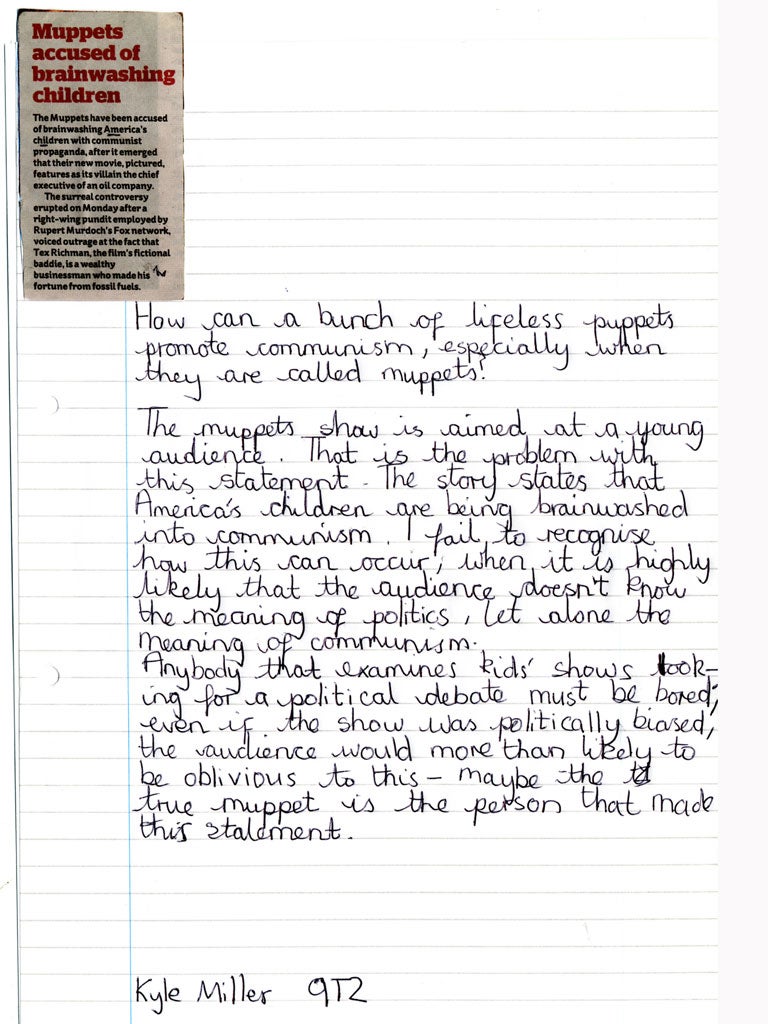 Muppets
accused of
brainwashing
children
The Muppets have been accused
of brainwashing America's
children with communist
propaganda, after it emerged
that their new movie, pictured,
features as its villain the chief
executive of an oil company.
The surreal controversy
erupted on Monday after a
right-wing pundit employed by
Rupert Murdoch's Fox network,
voiced outrage at the fact that
Tex Richman, the film's fictional
baddie, is a wealthy
businessman who made his
fortune from fossil fuels.
How can a bunch of lifeless puppets
promote communism, especially when
they are called muppets!
The muppets show is aimed at a young
audience. That is the problem with
this statement. The story states that
America's children are being brainwashed
into communism. I fail to recognise
how this can occur, when it is highly
likely that the audience doesn't know
the meaning of politics, let alone the
meaning of communism.
Anybody that examines kids' shows look-
ing for a political debate must be bored;
even if the show was politically biased,
the audience would more than likely to
be oblivious to this – maybe the
true muppet is the person that made
this statement.
Kyle Miller 9T2